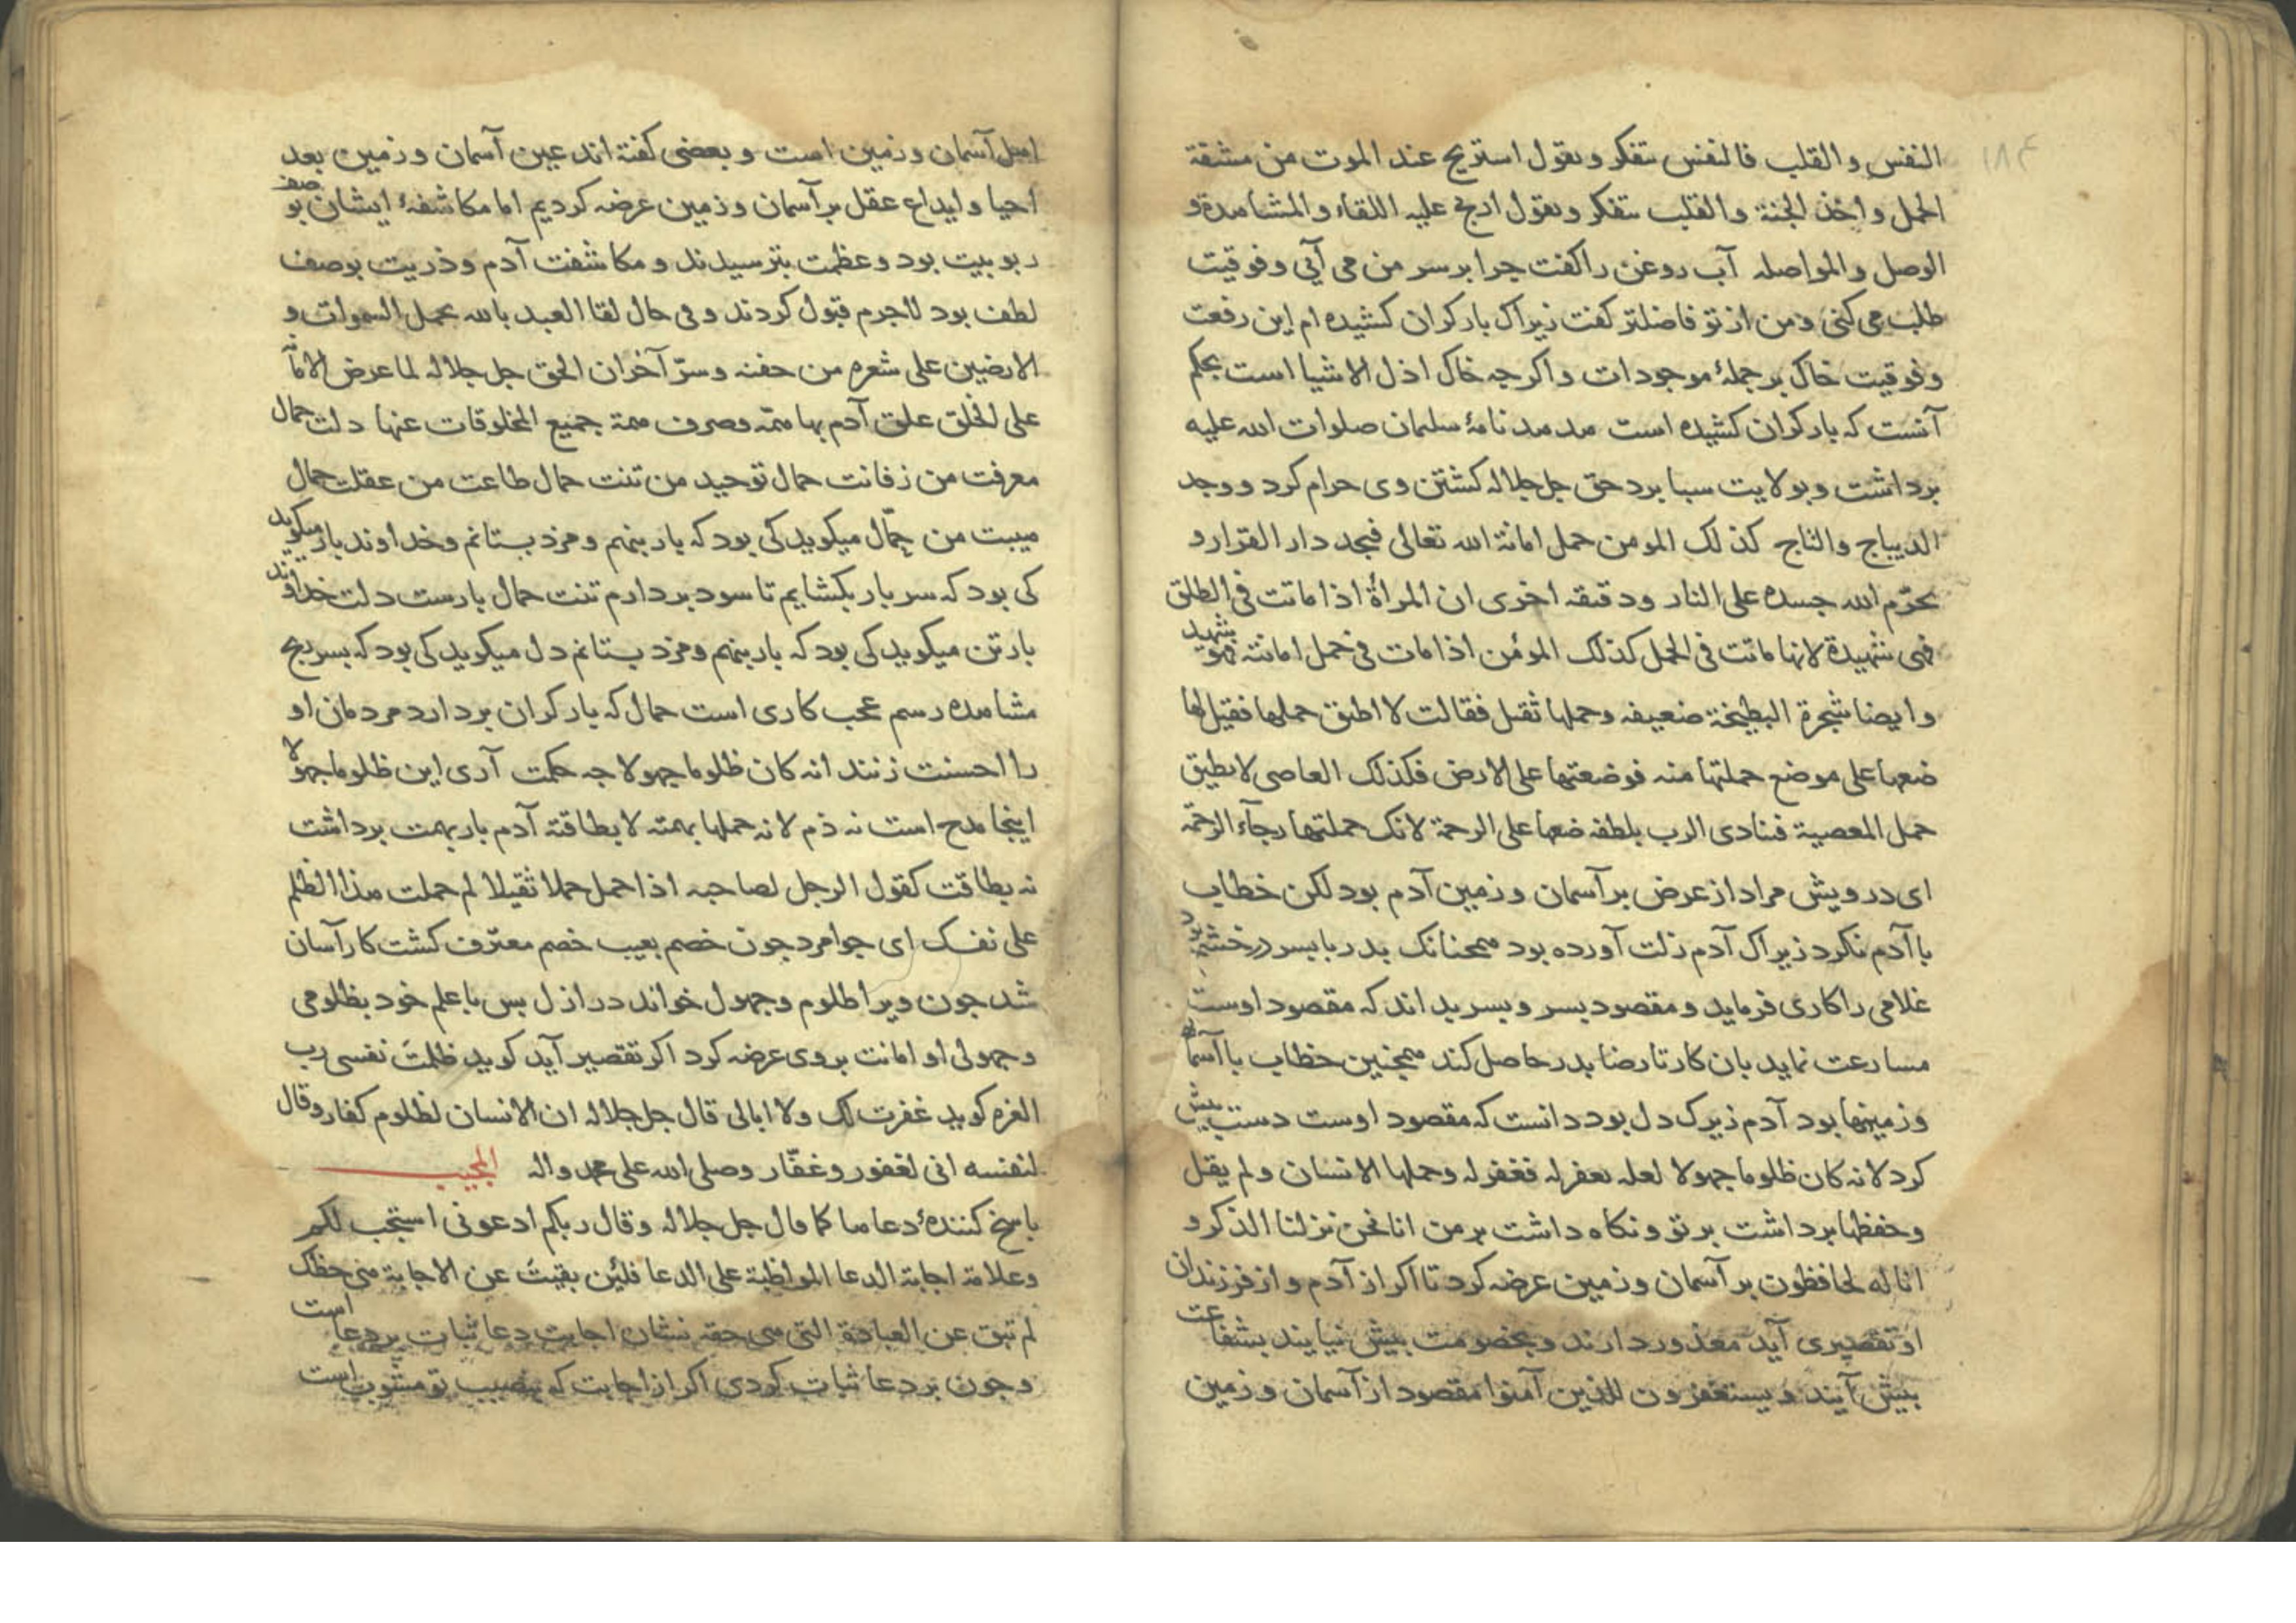 ۱۸۴
النفس والقلب فالنفس يتفكر ويقول استريح عند الموت من مشقة
الحمل واخذ الجنة والقلب يتفكر ويقول اربح عليه اللقاء والمشاهدة و
الوصل والمواصله آب روغن را كفت جرا بر سر من مى آيى وفوقيت
طلب مى كنى ومن از تو فاضلتر كفت زيراك بار كران كشيده ام اين رفعت
وفوقيت خاك بر جملۀ موجودات واكرجه خاك اذل الاشيا است بحكم
آنست كه بار كران كشيده است هدهد نامۀ سليمان صلوات الله عليه
برداشت وبولايت سبا برد حق جل جلاله كشتن وى حرام كرد ووجد
الديباج والتاج كذلك المومن حمل امانة الله تعالى فيجد دار القرار و
يحرّم الله جسده على النار ودقيقه اخرى ان المرأة اذا ماتت فى الطلق
فهى شهيدة لانها ماتت فى الحمل كذلك المؤمن اذا مات فى حمل امانته فهو شهيد
وايضا شجرة البطيخة ضعيفه وحملها ثقيل فقالت لا اطيق حملها فقيل لها
ضعها على موضع حملتها منه فوضعتها على الارض فكذلك العاصى لا يطيق
حمل المعصية فنادى الرب بلطفه ضعها على الرحمة لانك حملتها رجآء الرحمة
اى درويش مراد از عرض بر آسمان وزمين آدم بود لكن خطاب
با آدم نكرد زيراك آدم زلت آورده بود همجنانك پدر با پسر در خشم بود
غلامى را كارى فرمايد ومقصود پسر وپسر بداند كه مقصود اوست
مسارعت نمايد بان كار تا رضا پدر حاصل كند همجنين خطاب با آسمانها
وزمينها بود آدم زيرك دل بود دانست كه مقصود اوست دست پيش
كرد لانه كان ظلوما جهولا لعله يعفر له فغفر له وحملها الانسان ولم يقل
وحفظها برداشت بر تو ونكاه داشت بر من انا نحن نزلنا الذكر و
انا له لحافظون بر آسمان وزمين عرضه كرد تا اكر از آدم واز فرزندان
او تقصيرى آيد معذور دارند وبخصومت بيش نيايند بشفاعت
بيش آيند ويستغفرون للذين آمنوا مقصود از آسمان وزمين
اهل آسمان وزمين است وبعضى كفته اند عين آسمان وزمين بعد
احيا وايداع عقل بر آسمان وزمين عرضه كرديم اما مكاشفۀ ايشان بوصف
ربوبيت بود وعظمت بترسيدند ومكاشفت آدم وذريت بوصف
لطف بود لاجرم قبول كردند وفى حال لقا العبد بالله يحمل السموات و
الارضين على شعره من جفنه وسرّ آخر ان الحق جل جلاله لما عرض الامانة
على الخلق علق آدم بها همّه وصرف همة جميع المخلوقات عنها دلت حمال
معرفت من زفانت حمال توحيد من تنت حمال طاعت من عقلت حمال
هيبت من حمّال ميكويد كى بود كه بار بنهم ومزد بستانم وخداوند بار ميكويد
كى بود كه سر بار بكشايم تا سود بردارم تنت حمال بارست دلت خداوند
بار تن ميكويد كى بود كه بار بنهم ومزد بستانم دل ميكويد كى بود كه بسر بح
مشاهده رسم عجب كارى است حمال كه بار كران بردارد مردمان او
را احسنت زنند انه كان ظلوما جهولا جه حكمت آرى اين ظلوما جهولا
اينجا مدح است نه ذم لانه حملها بهمته لا بطاقته آدم بار بهمت برداشت
نه بطاقت كقول الرجل لصاحبه اذا حمل حملا ثقيلا لم حملت هذا الظلم
على نفسك اى جوامرد جون خصم بعيب خصم معترف كشت كار آسان
شد جون ويرا ظلوم وجهول خواند در ازل پس با علم خود بظلومى
وجهولى او امانت بروى عرضه كرد اكر تقصير آيد كويد ظلمت نفسى رب
العزه كويد غفرت لك ولا ابالى قال جل جلاله ان الانسان لظلوم كفار وقال
لنفسه انى لغفور وغفّار وصلى الله على محمد واله المجيب
پاسخ كنندۀ دعاها كما قال جل جلاله وقال ربكم ادعونى استجب لكم
وعلامة اجابة الدعا المواظبة على الدعا فلئن بقيت عن الاجابة هى حظك
لم تبق عن العبادة التى هى حقه نشان اجابت دعا ثبات بر دعا است
وجون بر دعا ثبات كردى اكر از اجابت كه نصيب تو است